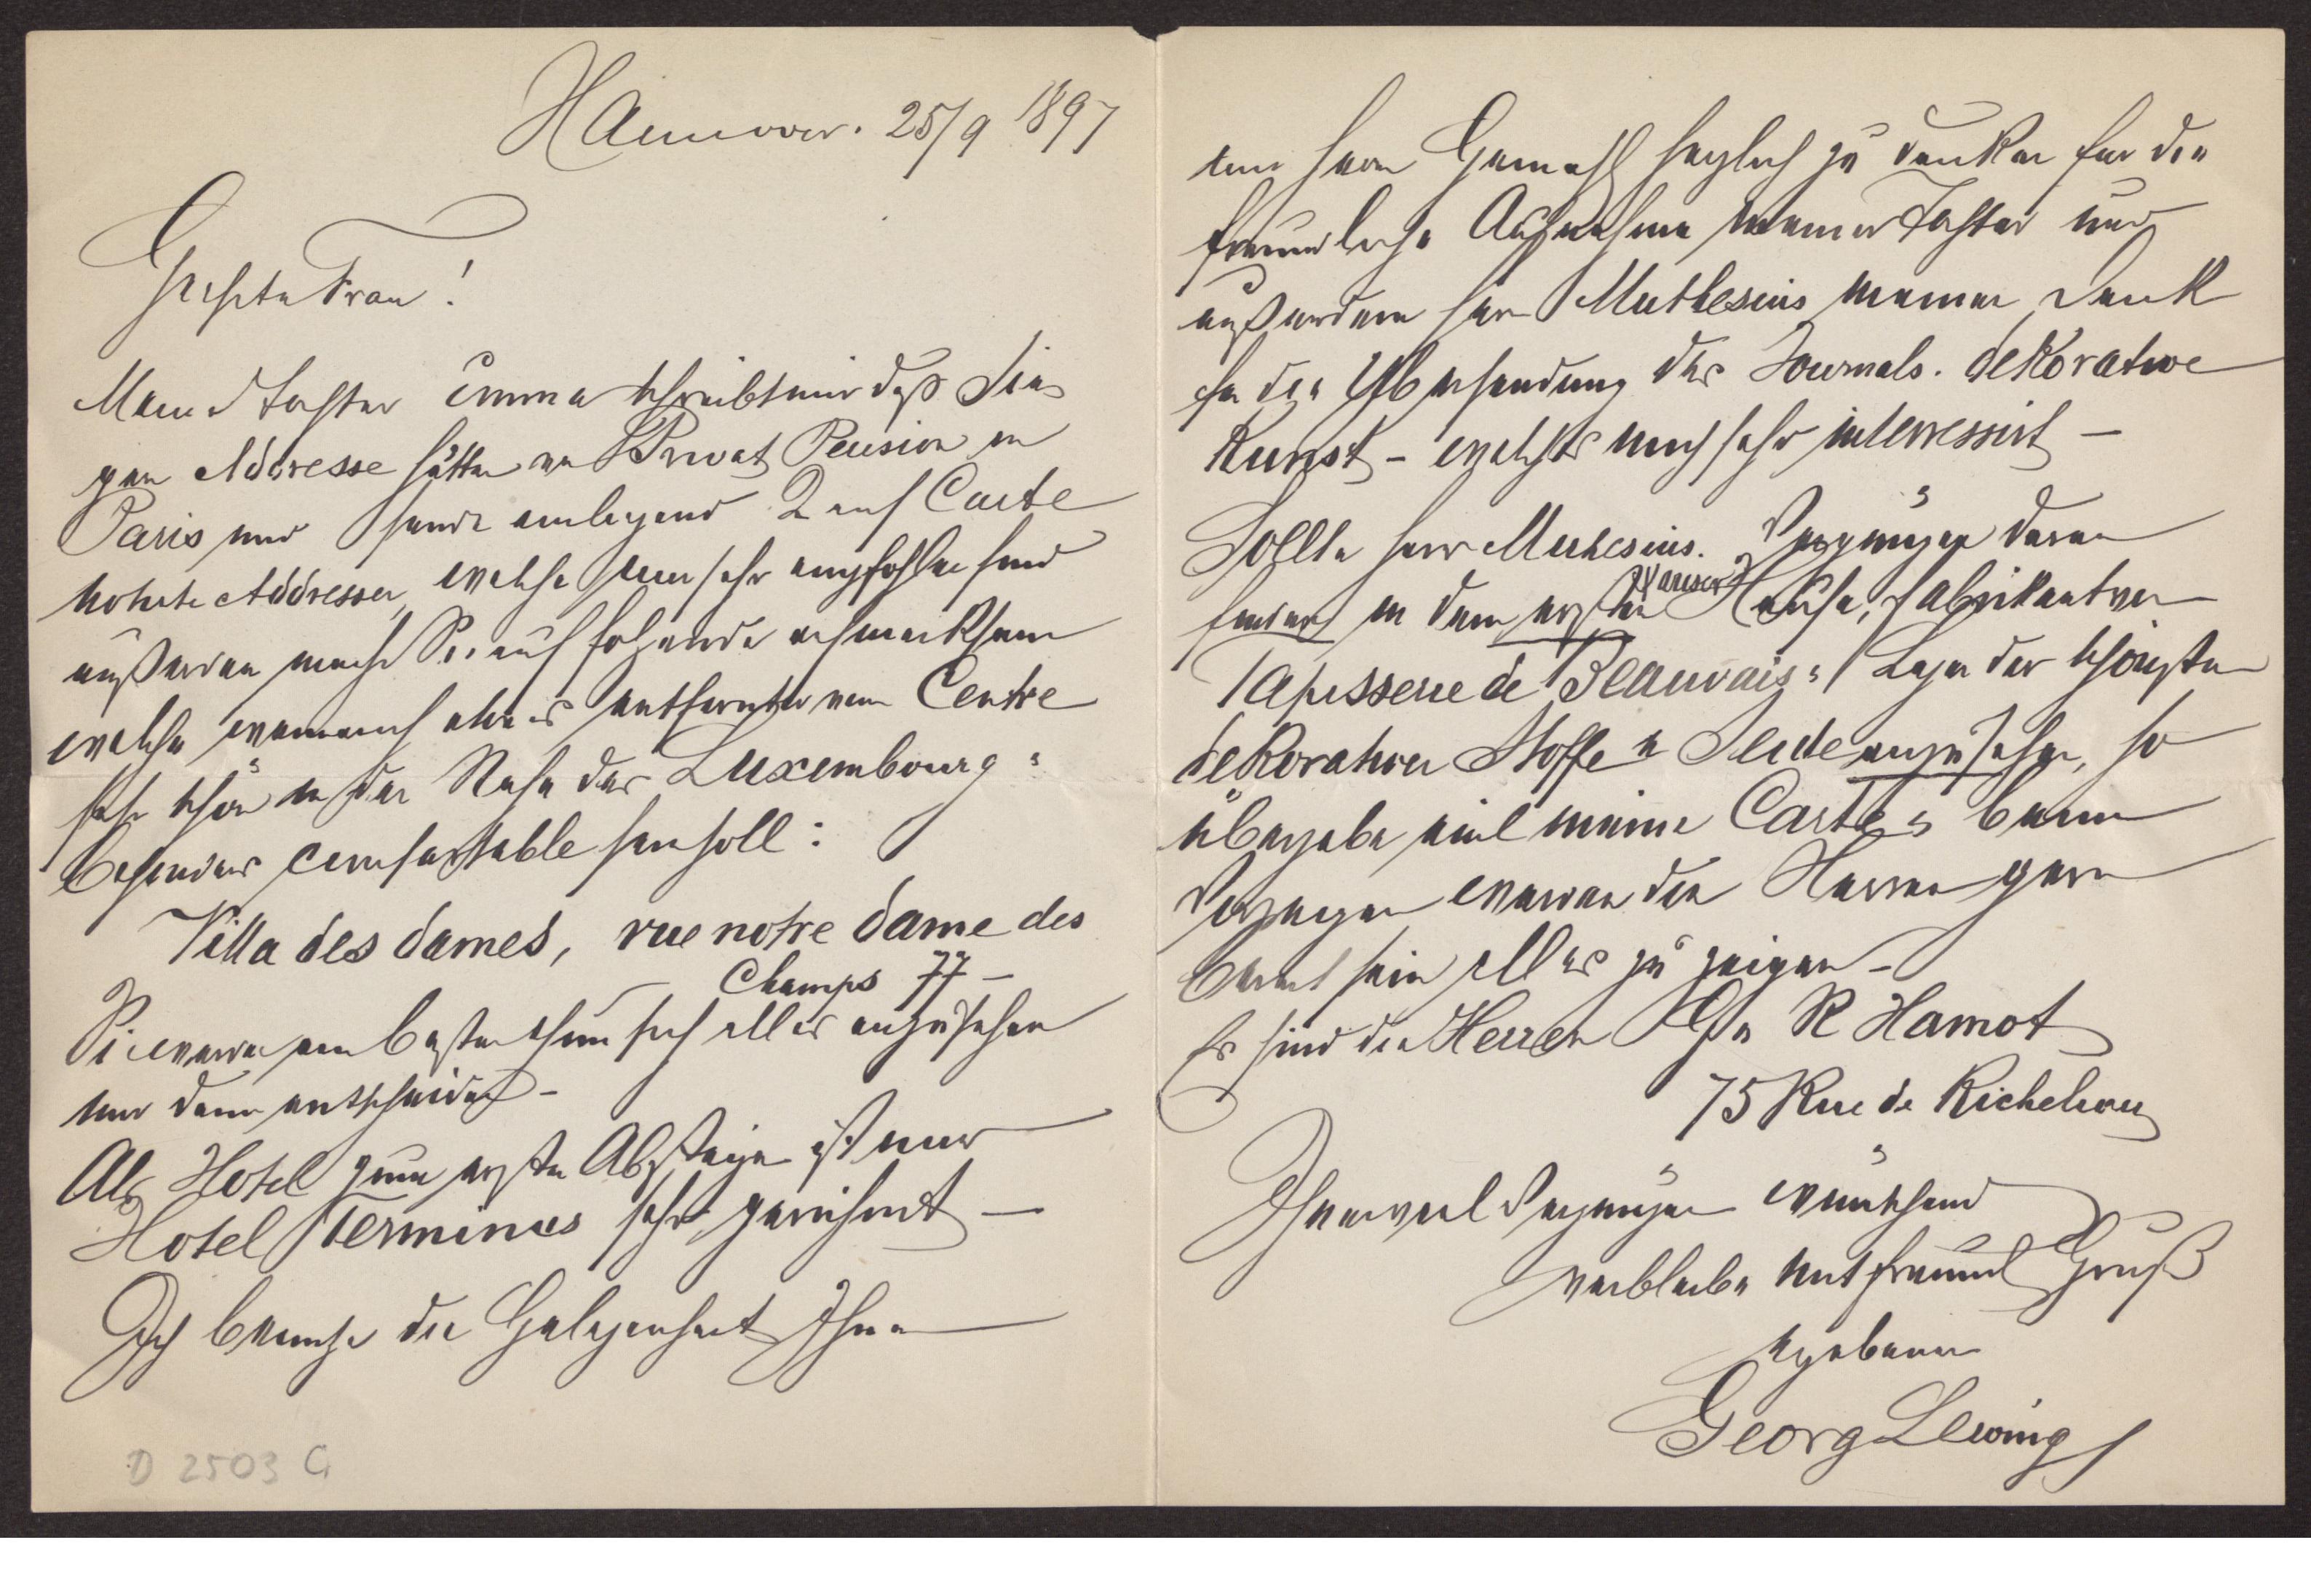 Hannover. 25/9 1897
Geehrte Frau!
Meine Tochter Emma schreibt mir daß Sie
gern Addresse hätten von Privat Pension in
Paris und sende einliegend 2 auf Carte
notirte Addressen, welche mir sehr empfohlen sind
außerdem mache Sie auf folgende aufmerksam
welche wenn auch etwas entfernter vom Centre
sehr schön in der Nähe des Luxembourg =
besonders comfortable sein soll:
Villa des dames, rue notre dame des
Champs 77 –
Sie werden am besten thun sich alles anzusehen
und dann entscheiden –
Als Hotel zum ersten Absteigen ist nur
Hotel Terminus sehr gerühmt –
Ich benutze die Gelegenheit Ihnen
D 2503 G
und Herrn Gemahl herzlich zu danken für die
freundliche Aufnahme meiner Tochter und
außerdem Herrn Muthesius meinen Dank
für die Übersendung des Journals. dekorative
Kunst – welches mich sehr interressirt –
Sollte Herr Muthesius. Vergnügen daran
finden in dem ersten Pariser Hause, Fabrikant von
Tapisserie de Beauvais = Lager der schönsten
dekorativen Stoffe in Seide anzusehen, so
übergebe meine Carte = beim
Vorzeigen werden die Herren gern
bereit sein alles zu zeigen –
Es sind die Herren R Hamot
75 Rue de Richelieu
Ihnen viel Vergnügen wünschend
verbleibe mit freundl Gruß
ergebener
Georg Lewing